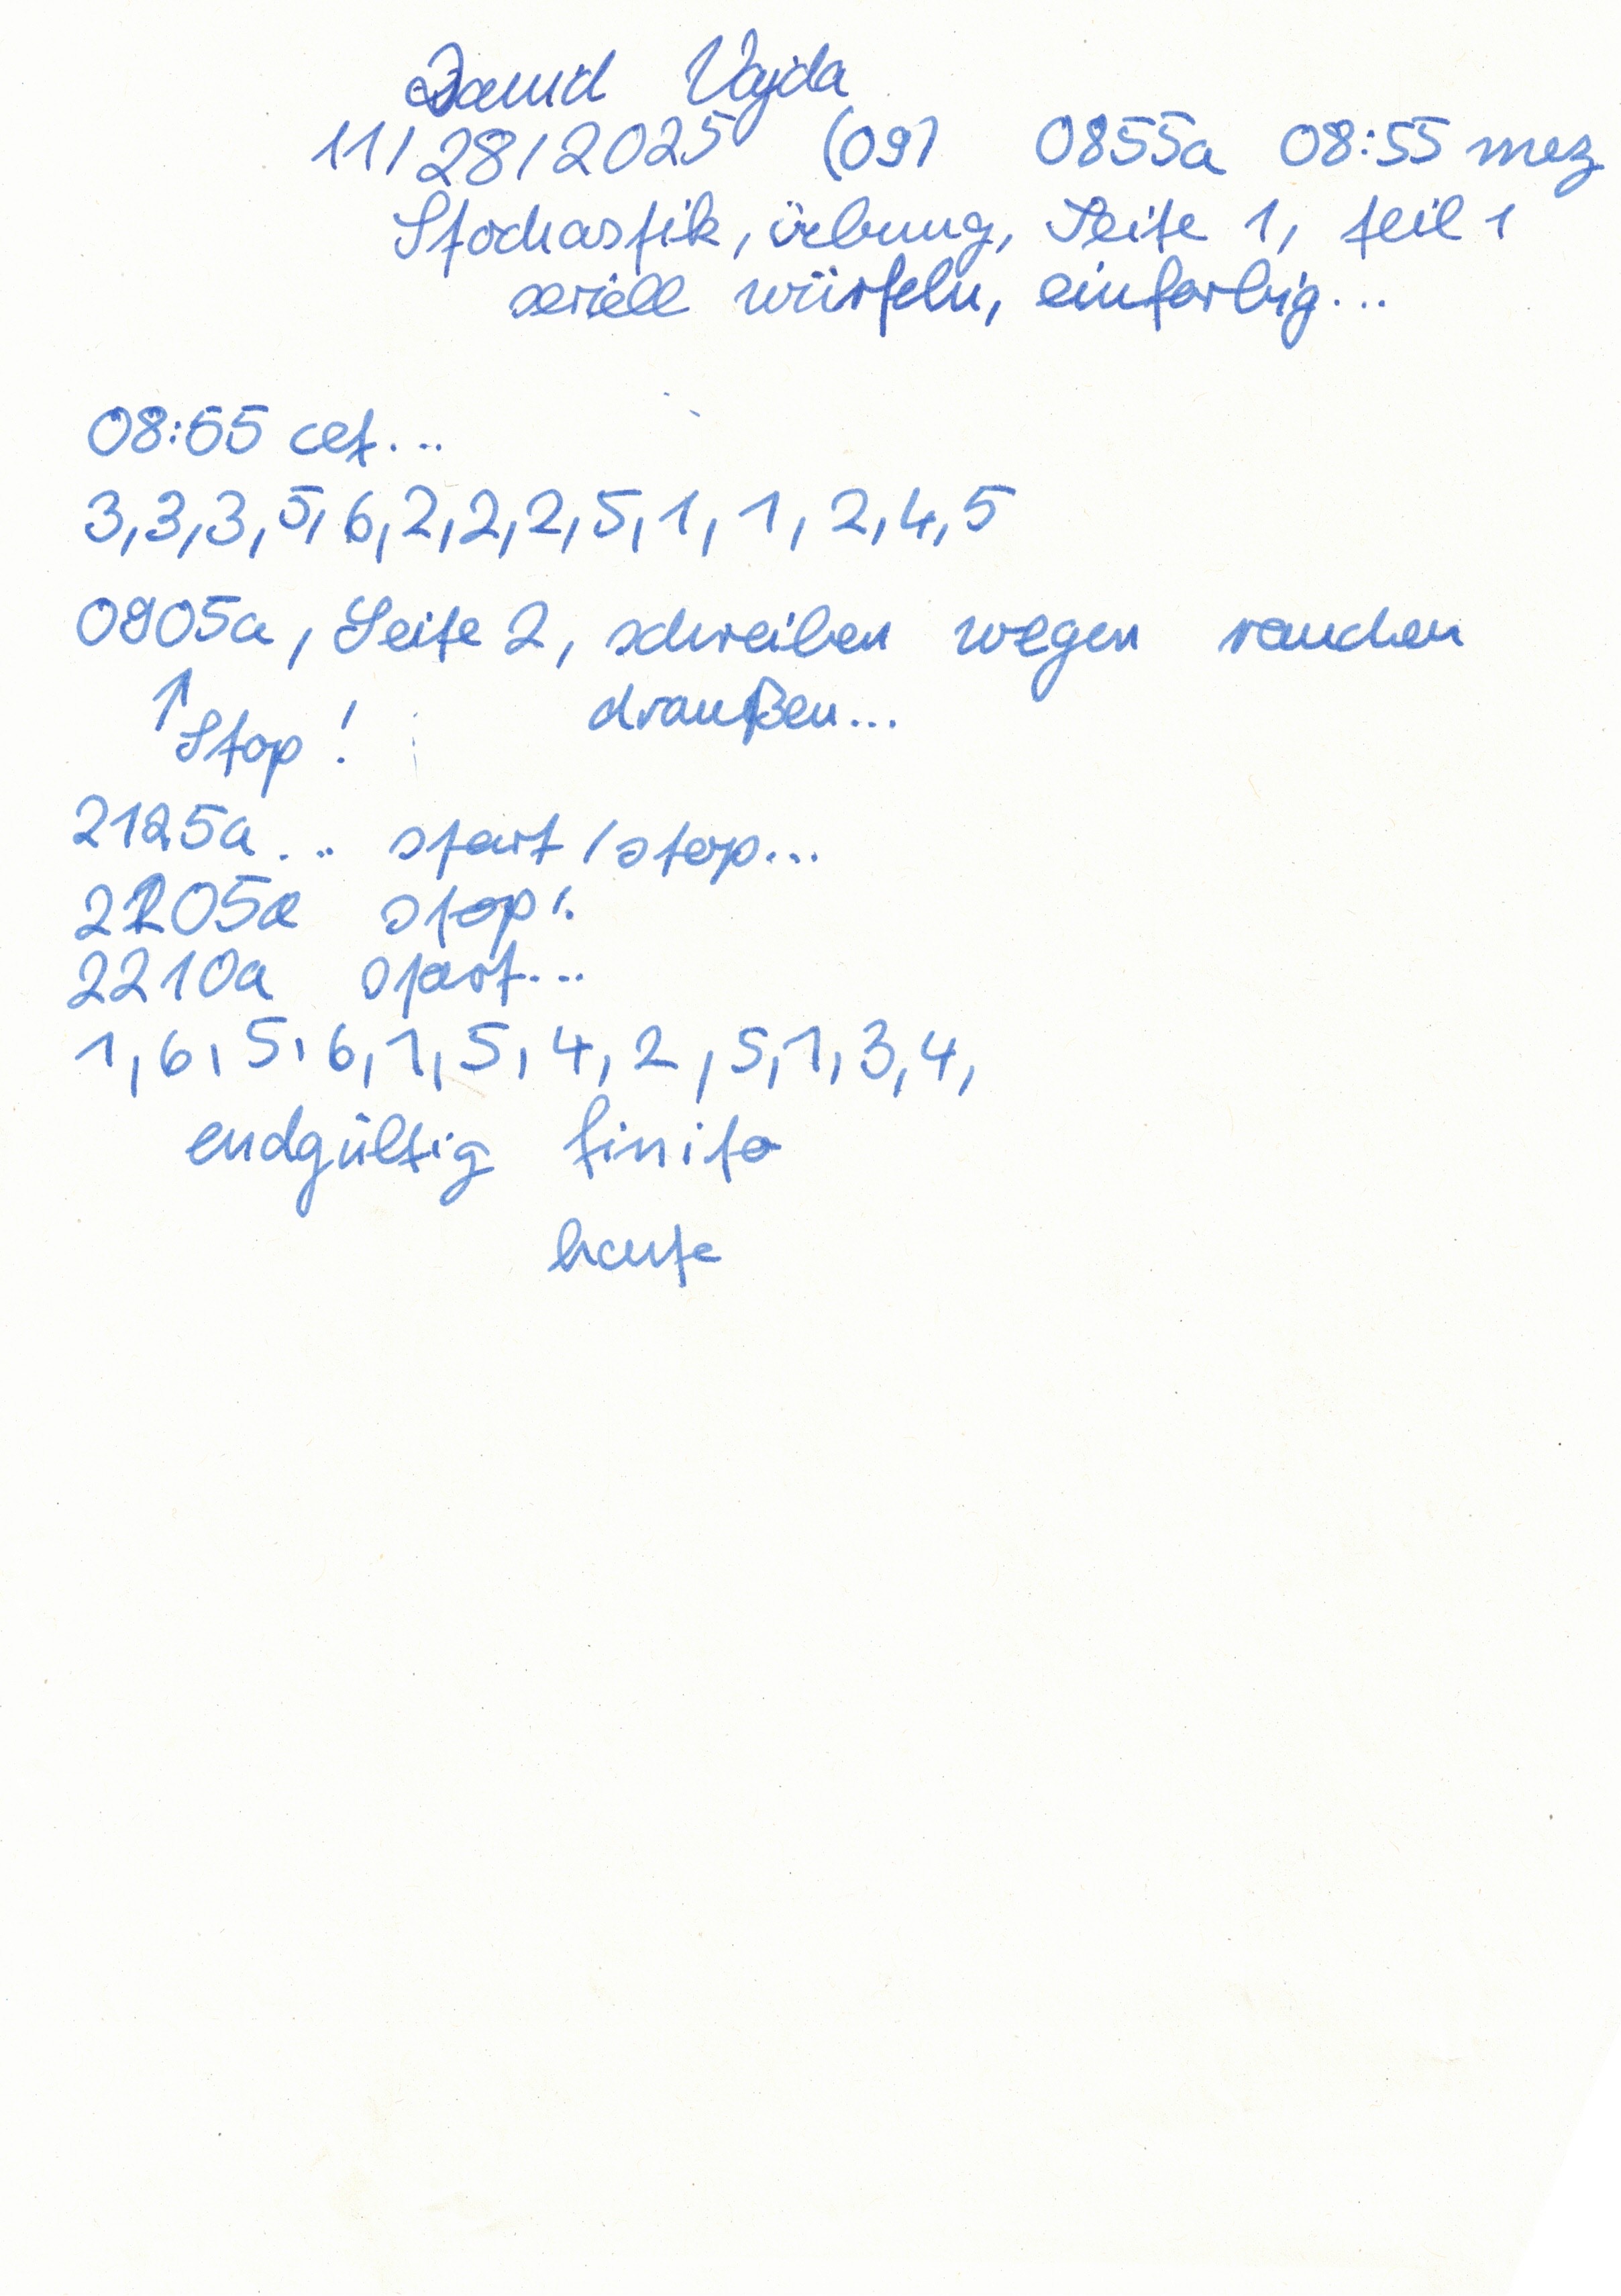 David Vajda
11/28/2025 (09) 0855a 08:55 mez
Stochastik, übung, Seite 1, teil 1
seriell würfeln, einfarbig...
08:55 cet...
3,3,3,5,6,2,2,2,5,1,1,2,4,5
0905a, Seite 2, schreiben wegen rauchen
↑ Stop! draußen...
2125a... start/stop...
2205a stop!
2210a start...
1,6,5,6,1,5,4,2,5,1,3,4,
endgültig finito
heute